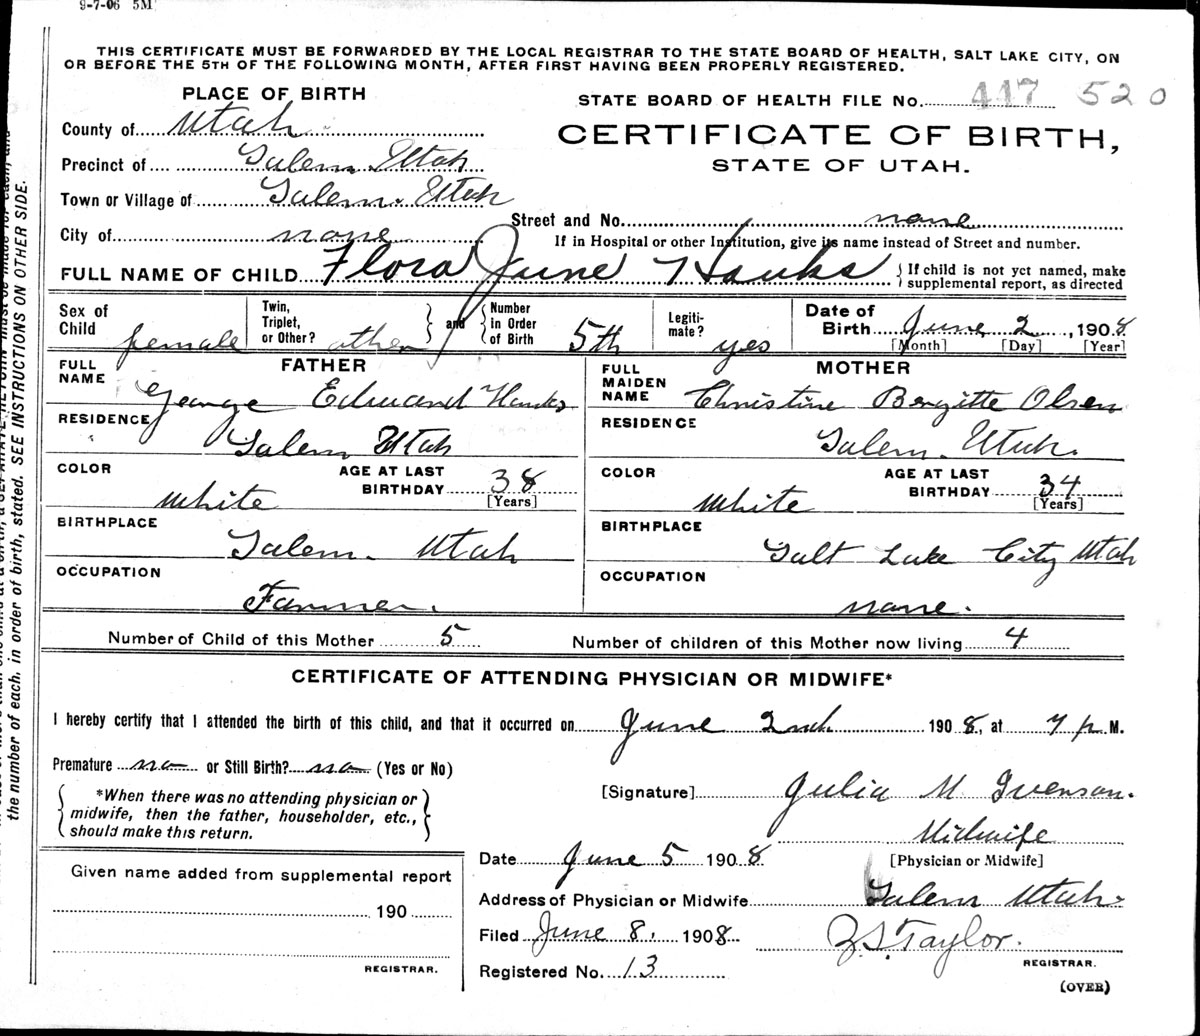 9-7-06 5M
THIS CERTIFICATE MUST BE FORWARDED BY THE LOCAL REGISTRAR TO THE STATE BOARD OF HEALTH, SALT LAKE CITY, ON
OR BEFORE THE 5TH OF THE FOLLOWING MONTH, AFTER FIRST HAVING BEEN PROPERLY REGISTERED.
PLACE OF BIRTH
STATE BOARD OF HEALTH FILE No. 447 520
County of Utah
CERTIFICATE OF BIRTH,
STATE OF UTAH.
Precinct of Salem Utah
Town or Village of Salem. Utah
Street and No. none
City of none
If in Hospital or other Institution, give its name instead of Street and number.
FULL NAME OF CHILD Flora June Hanks
{ If child is not yet named, make
supplemental report, as directed
Sex of Child female
Twin, Triplet, or Other? other
and
Number in Order of Birth 5th
Legiti-mate? yes
Date of Birth June 2, 1908
[Month] [Day] [Year]
FATHER
FULL NAME George Edward Hanks
RESIDENCE Salem Utah
COLOR White
AGE AT LAST BIRTHDAY 38
[Years]
BIRTHPLACE Salem. Utah
OCCUPATION Farmer.
MOTHER
FULL MAIDEN NAME Christine Bergitte Olsen
RESIDENCE Salem. Utah.
COLOR White
AGE AT LAST BIRTHDAY 34
[Years]
BIRTHPLACE Salt Lake City Utah
OCCUPATION none.
Number of Child of this Mother 5
Number of children of this Mother now living 4
CERTIFICATE OF ATTENDING PHYSICIAN OR MIDWIFE*
I hereby certify that I attended the birth of this child, and that it occurred on June 2nd 1908, at 7 p M.
Premature no or Still Birth? no (Yes or No)
*When there was no attending physician or
midwife, then the father, householder, etc.,
should make this return.
[Signature] Julia M Ivenson.
Midwife
[Physician or Midwife]
Date June 5 1908
Address of Physician or Midwife Salem Utah.
Filed June 8, 1908
Z.S. Taylor.
REGISTRAR.
Registered No. 13
(OVER)
Given name added from supplemental report
190
REGISTRAR.
the number of each, in order of birth, stated. SEE INSTRUCTIONS ON OTHER SIDE.